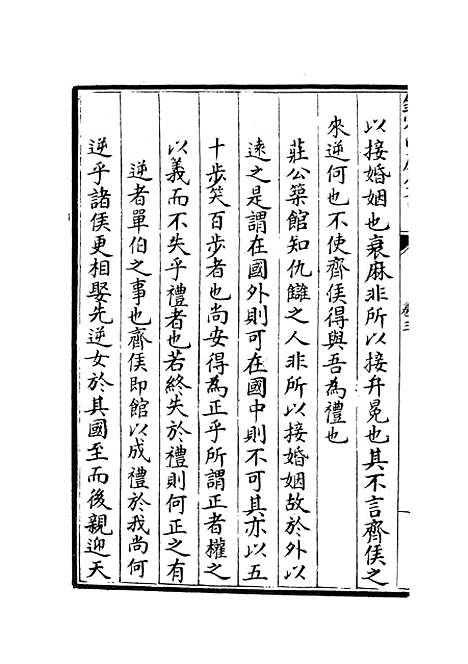 以接婚姻也衰麻非所以接弁冕也其不言齊侯之
來逆何也不使齊侯得與吾為禮也
莊公築館知仇讎之人非所以接婚姻故於外以
遠之是謂在國外則可在國中則不可其亦以五
十步笑百步者也尚安得為正乎所謂正者權之
以義而不失乎禮者也若終失於禮則何正之有
逆者單伯之事也齊侯即館以成禮於我尚何
逆乎諸侯更相娶先逆女於其國至而後親迎天
卷三